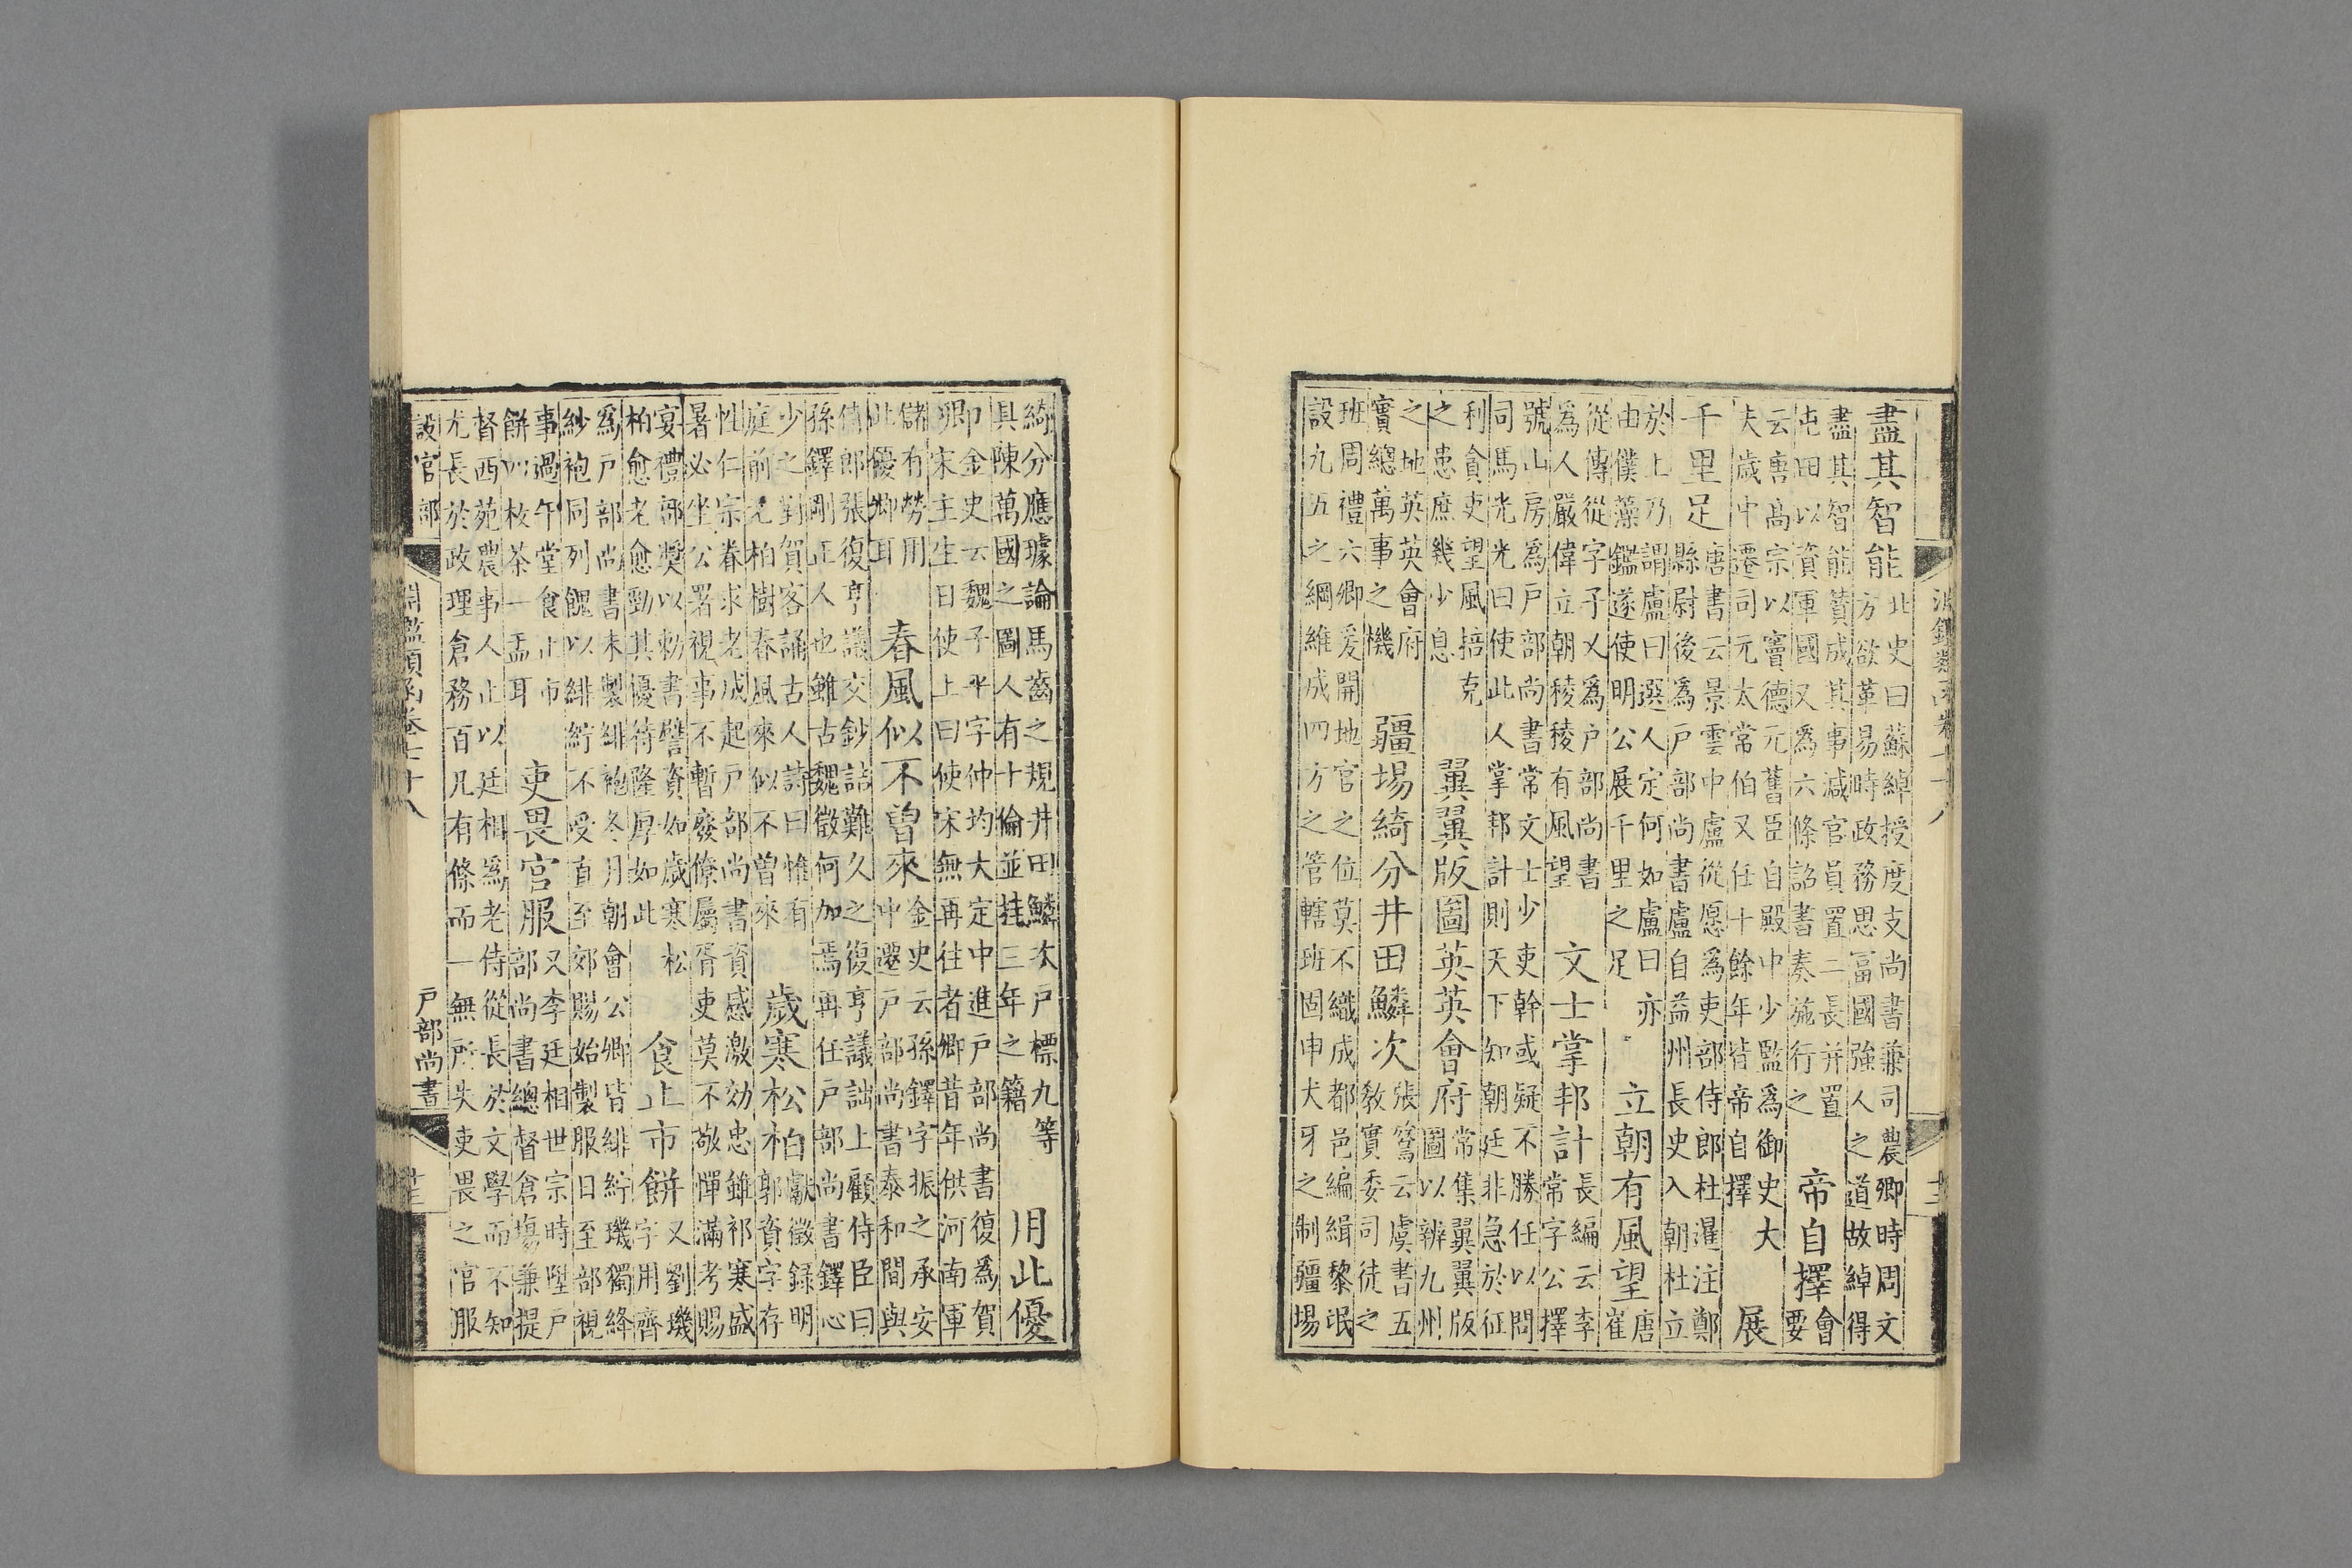 淵鑑類函卷七十八
盡其智能
北史曰蘇綽授度支尚書兼司農卿時周文
方欲革易時政務思富國強人之道故綽得
盡其智能贊成其事減官員置二長并置
屯田以資軍國又為六條詔書奏施行之
帝自擇
會
要
云唐高宗以竇德元舊臣自殿中少監為御史大
夫歲中遷司元太常伯又任十餘年皆帝自擇
展
千里足
唐書云景雲中盧從愿為吏部侍郎杜暹注鄭
縣尉後為戶部尚書盧自益州長史入朝杜立
於上乃謂盧曰選人定何如盧曰亦
由僕藻鑑遂使明公展千里之足
立朝有風望
唐
崔
從傳從字子乂為戶部尚書
為人嚴偉立朝稜稜有風望
文士掌邦計
長編云李
常字公擇
號山房為戶部尚書常文士少吏幹或疑不勝任以問
司馬光光曰使此人掌邦計則天下知朝廷非急於征
利貪吏望風掊克
之患庶幾少息
翼翼版圖英英會府
常集翼翼版
圖以辨九州
之地英英會府
實總萬事之機
疆埸綺分井田鱗次
張籌云虞書五
敎實委司徒之
班周禮六卿爰開地官之位莫不織成都邑編緝黎氓
設九五之綱維成四方之管轄班固申犬牙之制疆埸
綺分應璩論馬齒之規井田鱗次戶標九等
具陳萬國之圖人有十倫並挂三年之籍
用此優
卿
金史云魏子平字仲均大定中進戶部尚書復為賀
宋主生日使上曰使宋無再往者卿昔年供河南軍
儲有勞用
此優卿耳
春風似不曾來
金史云孫鐸字振之承安
中遷戶部尚書泰和間與
侍郎張復亨議交鈔詰難久之復亨議詘上顧侍臣曰
孫鐸剛正人也雖古魏徵何加焉再任戶部尚書鐸心
少之對賀客誦古人詩曰惟有
庭前老柏樹春風來似不曾來
歲寒松柏
獻徵録明
郭資字存
性仁宗眷求老成起戶部尚書資感激効忠雖祁寒盛
暑必坐公署視事不暫廢僚屬胥吏莫不敬憚滿考賜
宴禮部奬以勅書譬資如歲寒松
柏愈老愈勁其優待隆厚如此
食止市餅
又劉璣
字用齊
為戶部尚書未製緋袍冬月朝會公卿皆緋紵璣獨絳
紗袍同列餽以緋紵不受直至郊賜始製服日至部視
事過午堂食止市
餅四枚茶一盂耳
吏畏官服
又李廷相世宗時陞戶
部尚書總督倉塲兼提
督西苑農事人止以廷相為老侍從長於文學而不知
尤長於政理倉務百凡有條而一無所失吏畏之官服
設官部
淵鑑類函卷七十八
戶部尚書
廿三